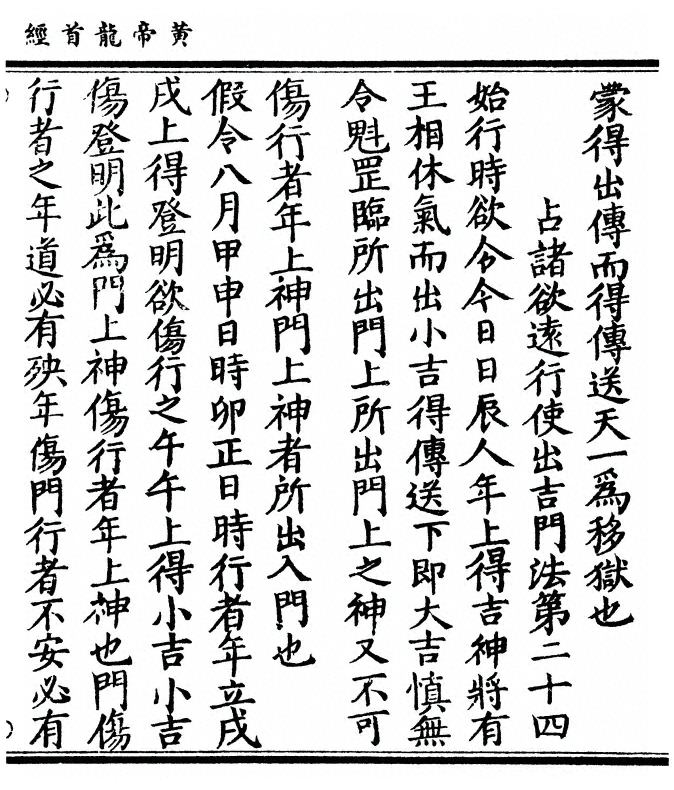 黄帝龍首經
蒙得出傳而得傳送天一爲移獄也
占諸欲遠行使出吉門法第二十四
始行時欲令今日日辰人年上得吉神將有
王相休氣而出小吉得傳送下即大吉慎無
令魁罡臨所出門上所出門上之神又不可
傷行者年上神門上神者所出入門也
假令八月甲申日時卯正日時行者年立戌
戌上得登明欲傷行之午午上得小吉小吉
傷登明此爲門上神傷行者年上神也門傷
行者之年道必有殃年傷門行者不安必有